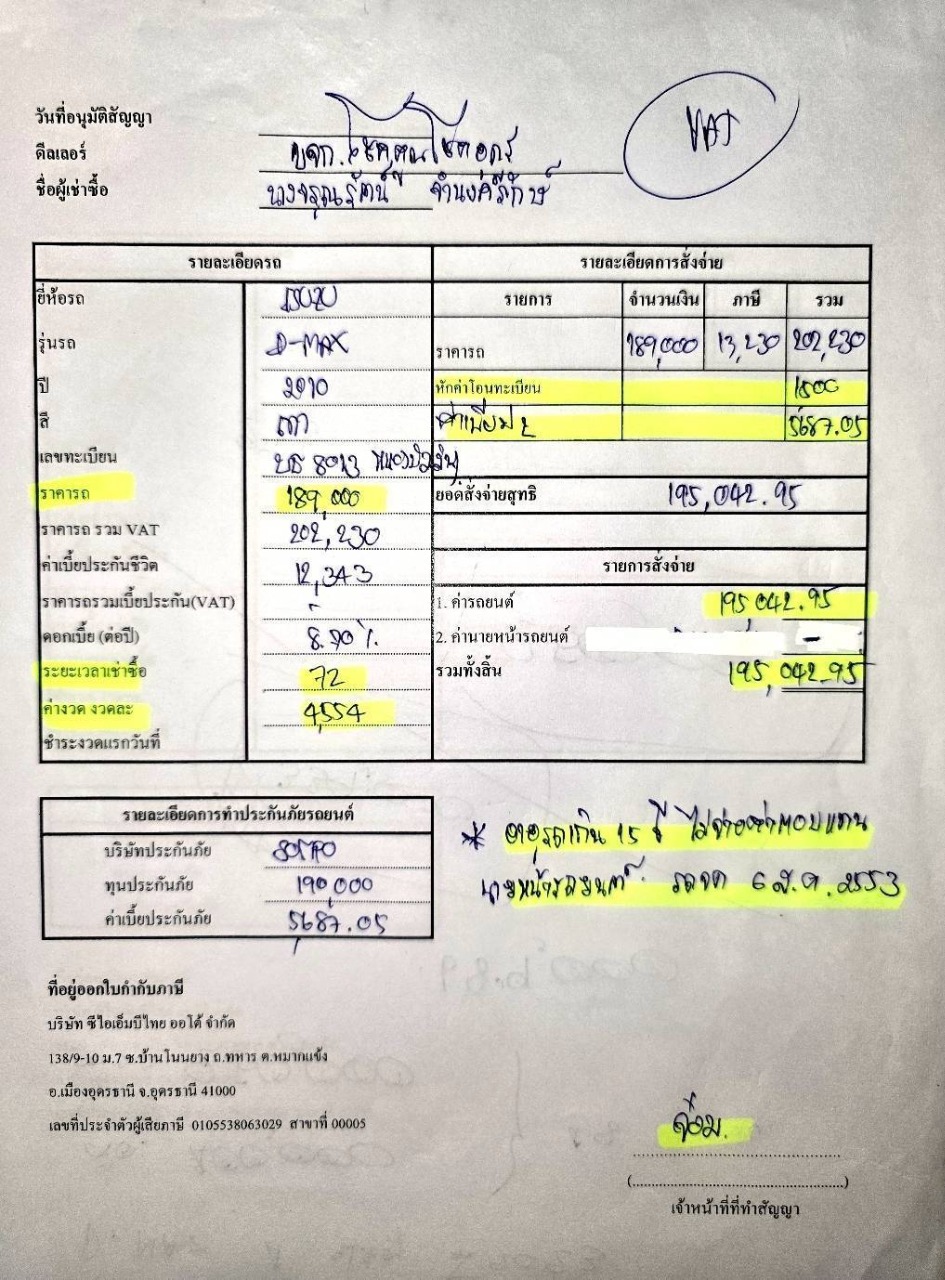 วันที่อนุมัติสัญญา
VAT
ดีลเลอร์ บจก.
ชื่อผู้เช่าซื้อ นางจรุณรัตน์
รายละเอียดรถ
ยี่ห้อรถ ISUZU
รุ่นรถ D-MAX
ปี 2010
สี เทา
เลขทะเบียน บธ 8013 หนองบัวลำภู
ราคารถ 189,000
ราคารถ รวม VAT 202,230
ค่าเบี้ยประกันชีวิต 12,343
ราคารถรวมเบี้ยประกัน(VAT)
ดอกเบี้ย (ต่อปี) 8.90 %
ระยะเวลาเช่าซื้อ 72
ค่างวด งวดละ 4,554
ชำระงวดแรกวันที่
รายละเอียดการสั่งจ่าย
รายการ จำนวนเงิน ภาษี รวม
ราคารถ 189,000 13,230 202,230
หักค่าโอนทะเบียน 1500
ค่าเบี้ย ป2 5687.05
ยอดสั่งจ่ายสุทธิ 195,042.95
รายการสั่งจ่าย
1. ค่ารถยนต์ 195,042.95
2. ค่านายหน้ารถยนต์ -
รวมทั้งสิ้น 195,042.95
รายละเอียดการทำประกันภัยรถยนต์
บริษัทประกันภัย
ทุนประกันภัย 190,000
ค่าเบี้ยประกันภัย 5687.05
* อายุรถเกิน 15 ปี ไม่จ่ายค่าตอบแทน
นายหน้ารถยนต์ รถจด 6 ส.ค. 2553
ที่อยู่ออกใบกำกับภาษี
บริษัท ซีไอเอ็มบีไทย ออโต้ จำกัด
138/9-10 ม.7 ซ.บ้านโนนยาง ถ.ทหาร ต.หมากแข้ง
อ.เมืองอุดรธานี จ.อุดรธานี 41000
เลขที่ประจำตัวผู้เสียภาษี 0105538063029 สาขาที่ 00005
จ๋อม.
(..................................................)
เจ้าหน้าที่ที่ทำสัญญา